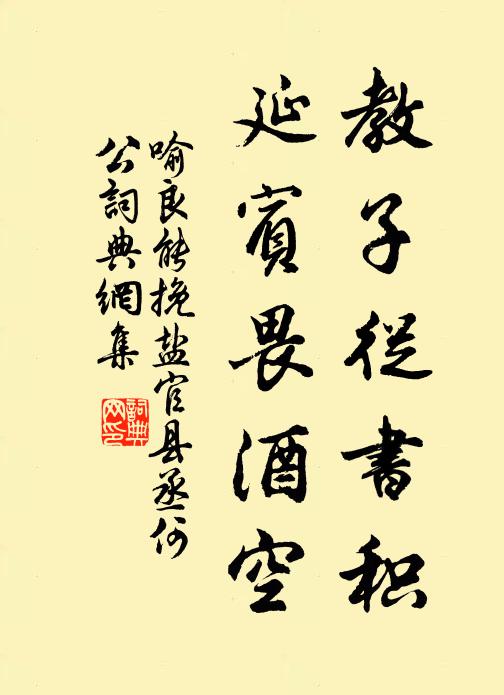 教子從書积
延賓畏酒空
喻良能挽盐官县丞何
公詞典網集
詞典
网印